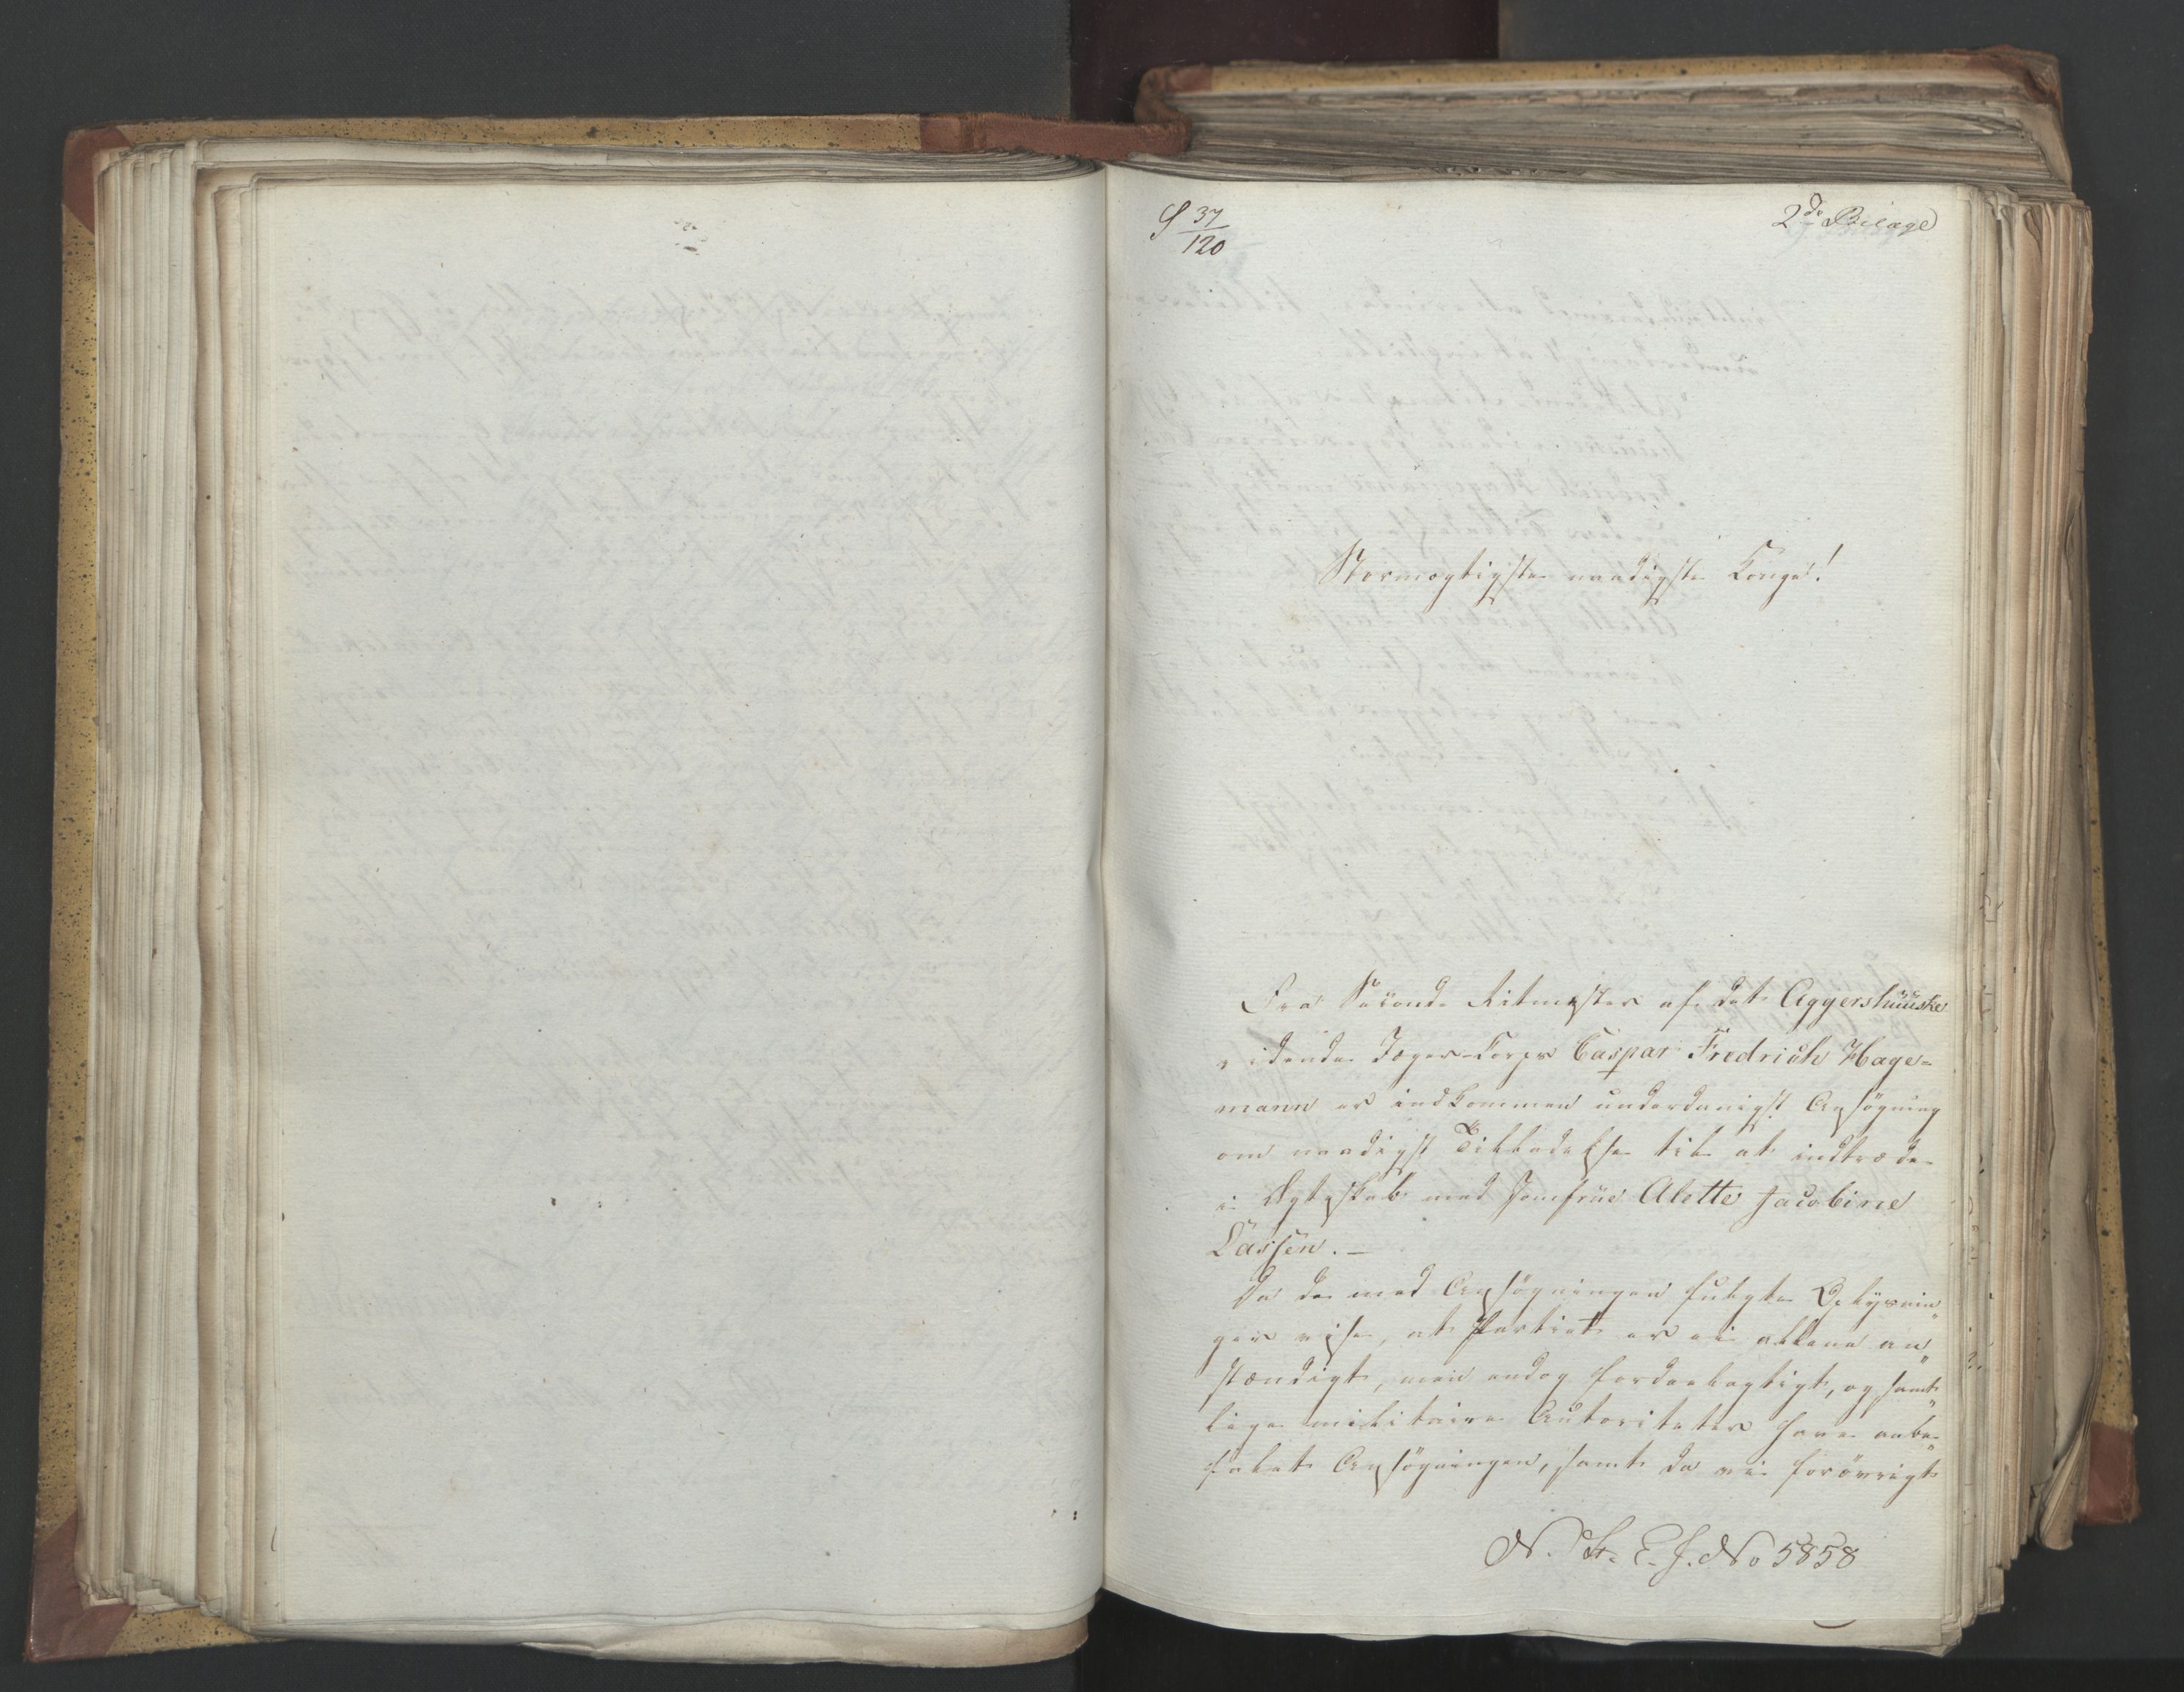 S 37/120
2de Bilage
Stormægtigste naadigste Konge!
Fra Second Ritmester af det Aggershuuske
ridende Jæger-Corps Caspar Fredrich Hage-
mann er indkommen underdanigst Ansøgning
om naadigst Tilladelse til at indtræde
i Ægteskab med Jomfrue Alette Jacobine
Lassen. —
Da de med Ansøgningen fulgte Oplysnin„
ger vise, at Partiet er ei allene an„
stændigt, men endog fordeelagtigt, og samt„
lige militaire Autoriteter have anbe„
falet Ansøgningen, samt da vi forövrigt
N. St. E. J. No 5858